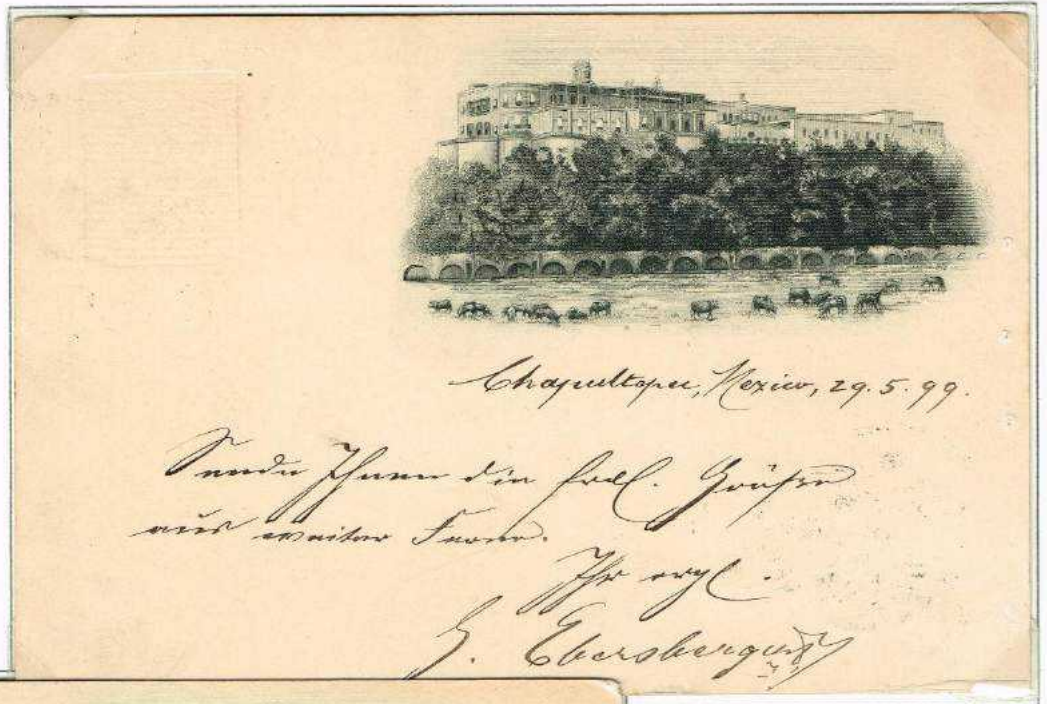 Chapultepec, Mexico, 29.5.99.
Sende Ihnen die frdl. Grüße
aus weiter Ferne.
Ihr ergb.
Ebersberger